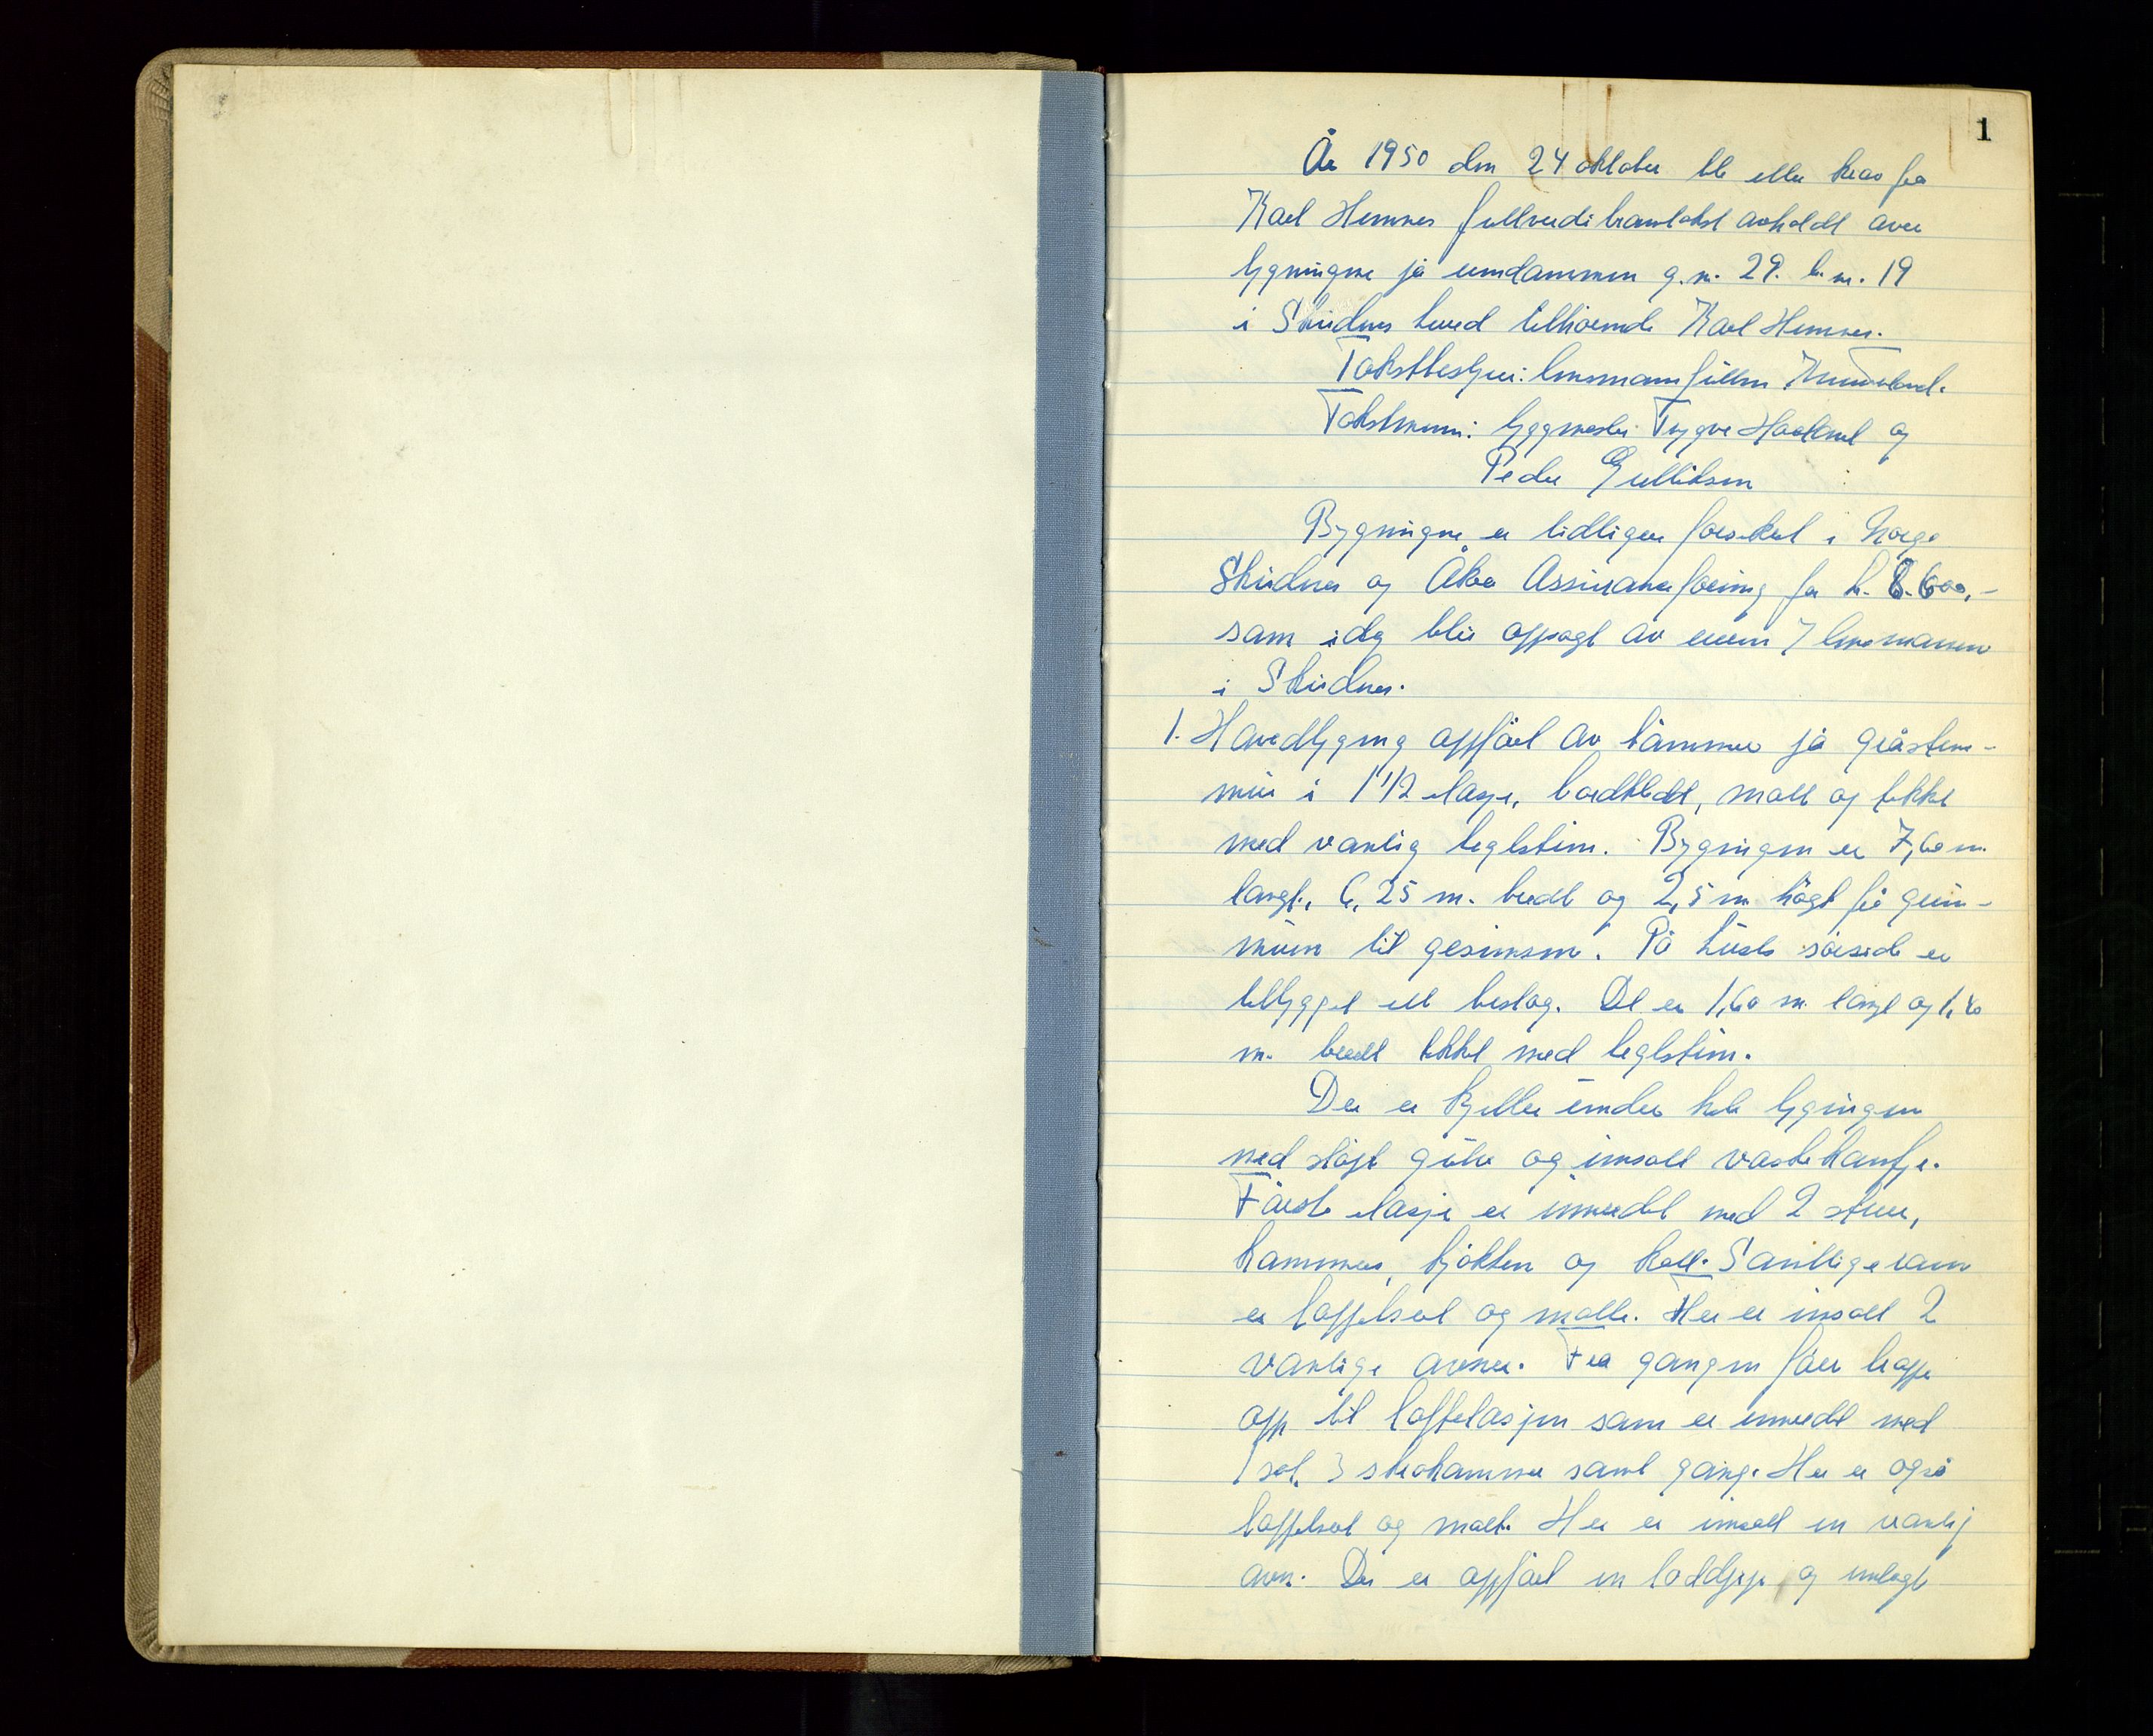 1
År 1950 den 24 oktober ble etter krav fra
Karl Hemnes fullverdi branntakst avholdt over
bygningene på eiendommen g.nr. 29. b.nr. 19
i Skudnes herred tilhørende Karl Hemnes.
Takstbestyrer: lensmannfullm.
Takstmenn: byggmester Trygve Hadland og
Peder Gulliksen
Bygningene er tidligere forsikret i Norge
Skudnes og Åkra Assuranseforening for kr. 8.600,-
som idag blir oppsagt av eieren / lensmannen
i Skudnes.
1. Hovedbygning oppført av tømmer på gråstens-
mur i 1 1/2 etasje, bordkledt, malt og tekket
med vanlig teglsten. Bygningen er 7,60 m.
langt, 6,25 m. bredt og 2,5 m høgt fra grunn-
muren til gesimsen. På husets sørside er
tilbygget ett beslag. Det er 1,60 m. langt og 1,40
m. bredt tekket med teglsten.
Der er kjeller under hele bygningen
med støpt gulv og innsatt vaskekantpe.
Første etasje er innredet med 2 stuer,
kammers, kjøkken og hall. Samtlige rom
er tapetsert og malte. Her er innsatt 2
vanlige ovner. Fra gangen fører trapp
opp til loftetasjen som er innredet med
1 sal, 3 skråkammer samt gang. Her er også
tapetsert og malt. Her er innsatt en vanlig
ovn. Der er oppført en loddpipe og innlagt